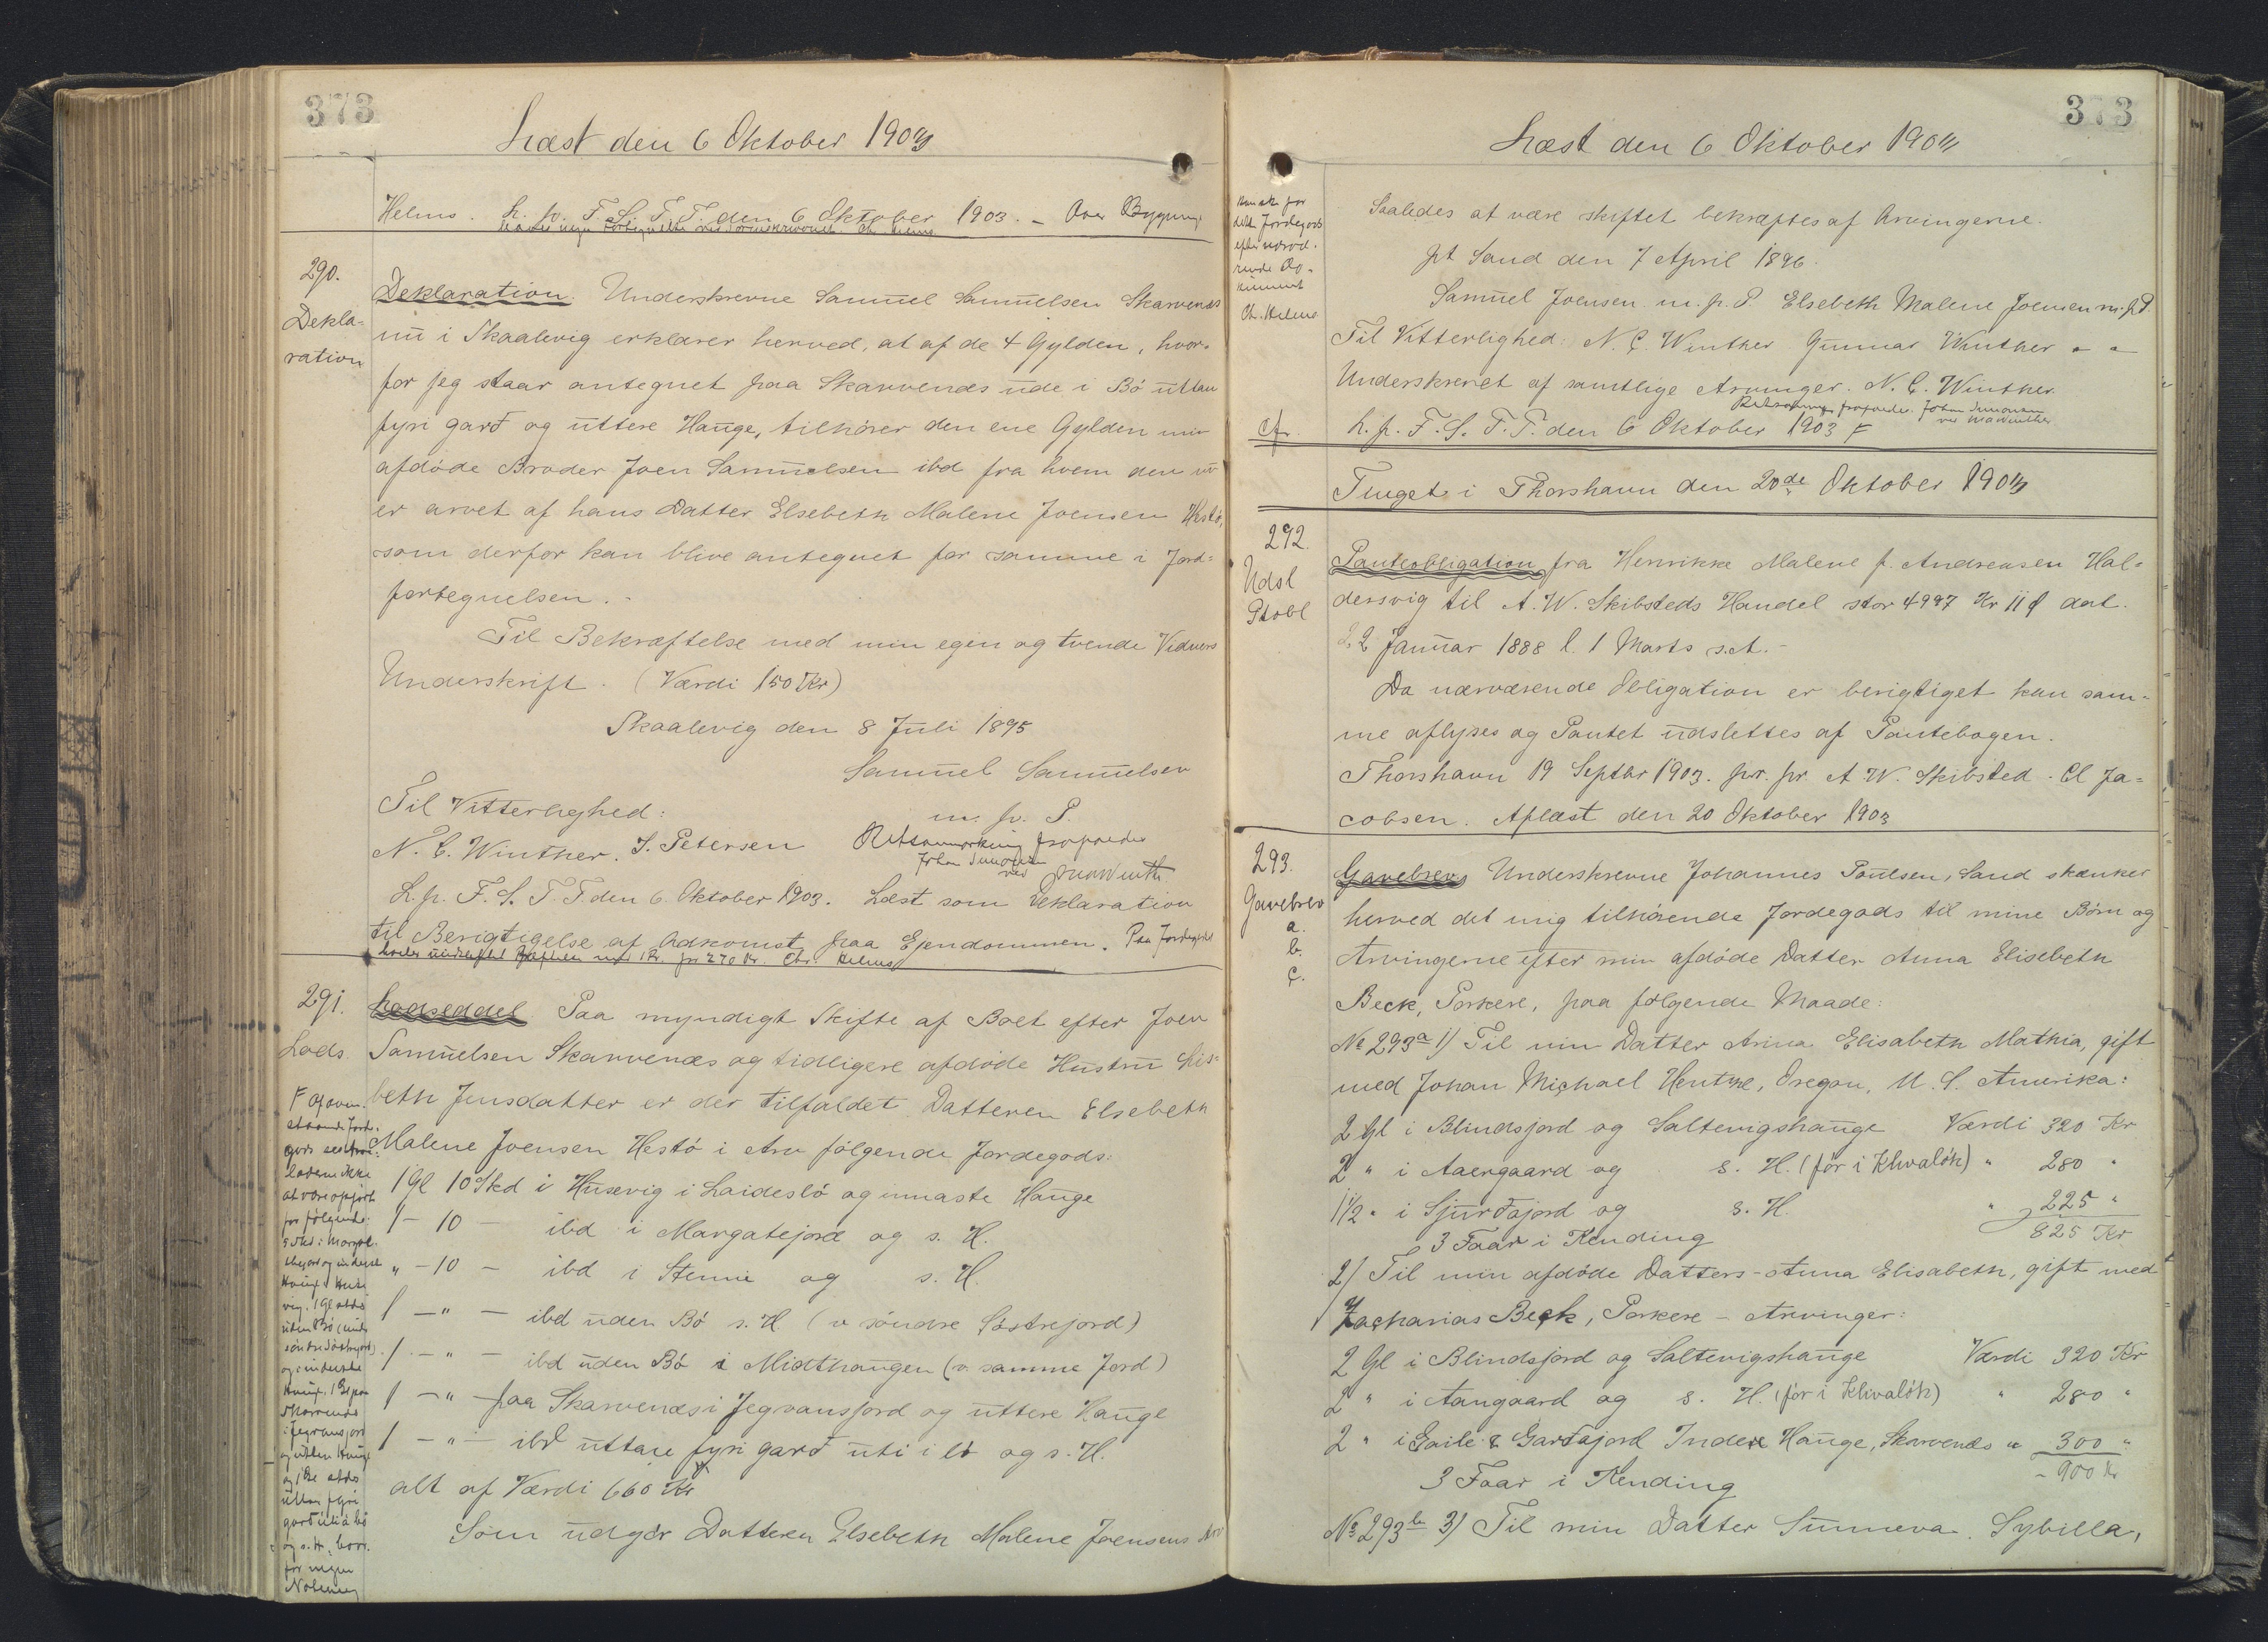 373
Læst den 6 Oktober 1903
Helms. L. p. F. S. T. T. den 6 Oktober 1903. – Over Bygning
haves ingen
290.
Dekla-
ration
Deklaration. Underskrevne Samuel Samuelsen Skarvenæs
nu i Skaalevig erklærer herved, at af de 4 Gylden, hvor-
for jeg staar antegnet paa Skarvenæs ude i Bø uttan
fyri garđ og uttere Hauge, tilhører den ene Gylden min
afdøde Broder Joen Samuelsen ibd fra hvem den nu
er arvet af hans Datter Elsebeth Malene Joensen Hestø,
som derfor kan blive antegnet for samme i Jord-
fortegnelsen. -
Til Bekræftelse med min egen og tvende Vidners
Underskrift. (Værdi 150 Kr)
Skaalevig den 8 Juli 1895
Samuel Samuelsen
m. p. P.
Til Vitterlighed:
N. C. Winther. J. Petersen
Retsanmærkning frafaldes
Johan Simonsen
ved
L. p. F. S. T. T. den 6. Oktober 1903. Læst som Deklaration
til Berigtigelse af Adkomst paa Ejendommen. Paa Jordegodset
hæfter 270 Kr. Chr. Helms
291.
Lods.
Lodseddel. Paa myndigt Skifte af Boet efter Joen
Samuelsen Skarvenæs og tidligere afdøde Hustru Lis-
beth Jensdatter er der tilfaldet Datteren Elsebeth
Malene Joensen Hestø i Arv følgende Jordegods:
1 Gl 10 Skd i Husevig i Laideslø og innaste Hauge
1 – 10 – ibd i Margatejord og s. H.
" – 10 – ibd i Stennie og s. H.
1 – " – ibd uden Bø s. H. (v søndre Søstrejord)
1 – " – ibd uden Bø i Midthaugen (v. samme Jord)
1 – " – paa Skarvenæs i Jegvansjord og uttere Hauge
1 – " – ibd uttare fyri garđ uti i bø og s. H.
alt af Værdi 660 Kr F
Som udgør Datteren Elsebeth Malene Joensens Arv
F Af oven-
staaende Jorde-
gods
ikke
at være opført
for følgende:
5 Skd i Margat-
ejord og inderste
Hauge i Huse-
vig, 1 Gl
uden Bø (
søndre Søstrejord)
og inderste
Hauge, 1 Gl paa
Skarvenæs
i Jegvansjord
og utten Hauge
og 1 Gl
utten fyri
garđ uti i bø
og s. H, hvor-
for ingen
373
Læst den 6 Oktober 1903
for
dette Jordegods
efter
Do-
kument
Ch. Helms
Saaledes at være skiftet bekræftes af Arvingerne.
pt Sand den 7 April 1896.
Samuel Joensen m. p. P. Elsebeth Malene Joensen m. p. P.
Til Vitterlighed: N. C. Winther Gunnar Winther " "
Underskrevet af samtlige Arvinger. N. C. Winther.
Retsanmærkn frafaldes. Johan Simonsen
ved
cfr.
L. p. F. S. T. T. den 6 Oktober 1903 F
Tinget i Thorshavn den 20de Oktober 1903
292.
Udsl
Ptobl
Panteobligation fra Henrikke Malene f. Andreasen Hal-
dersvig til A. W. Skibsteds Handel stor 4987 Kr 11 ø dat.
22 Januar 1888 l. 1 Marts s. A. -
Da nærværende Obligation er berigtiget kan sam-
me aflyses og Pantet udslettes af Pantebogen.
Thorshavn 19 Septbr 1903. pr. pr. A. W. Skibsted. Cl Ja-
cobsen. Aflæst den 20 Oktober 1903
293.
Gavebrev
a.
b.
c.
Gavebrev. Underskrevne Johannes Poulsen, Sand skænker
herved det mig tilhørende Jordegods til mine Børn og
Arvingerne efter min afdøde Datter Anna Elisebeth
Beck, Porkere, paa følgende Maade:
No 293a 1/ Til min Datter Anna Elisabeth Mathia, gift
med Johan Michael Hentze, Oregon, U. S. Amerika:
2 Gl i Blindsjord og Saltevigshauge Værdi 320 Kr
2 " i Aaergaard og s. H. (før i Klivaløk) " 280 "
1 1/2 " i Sjurđajord og s. H. " 225 "
3 Faar i Kending 825 Kr
2/ Til min afdøde Datters – Anna Elisabeth, gift med
Zacharias Beck, Porkere – Arvinger:
2 Gl i Blindsjord og Saltevigshauge Værdi 320 Kr
2 " i Aangaard og s. H. (før i Klivaløk) " 280 "
2 " i Gaile & Garđajord Indere Hauge, Skarvenæs " 300 "
3 Faar i Kending – 900 Kr
No 293b 3/ Til min Datter Sunneva Sybilla,